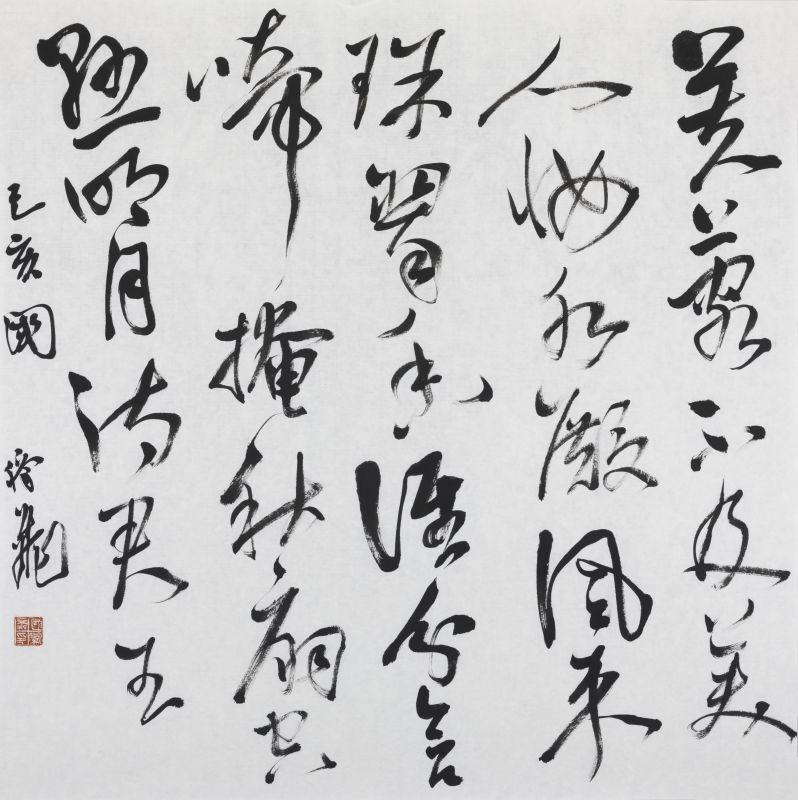 芙蓉不及美
人妝水殿風來
珠翠香誰分含
啼掩秋扇空
懸明月待君王
己亥